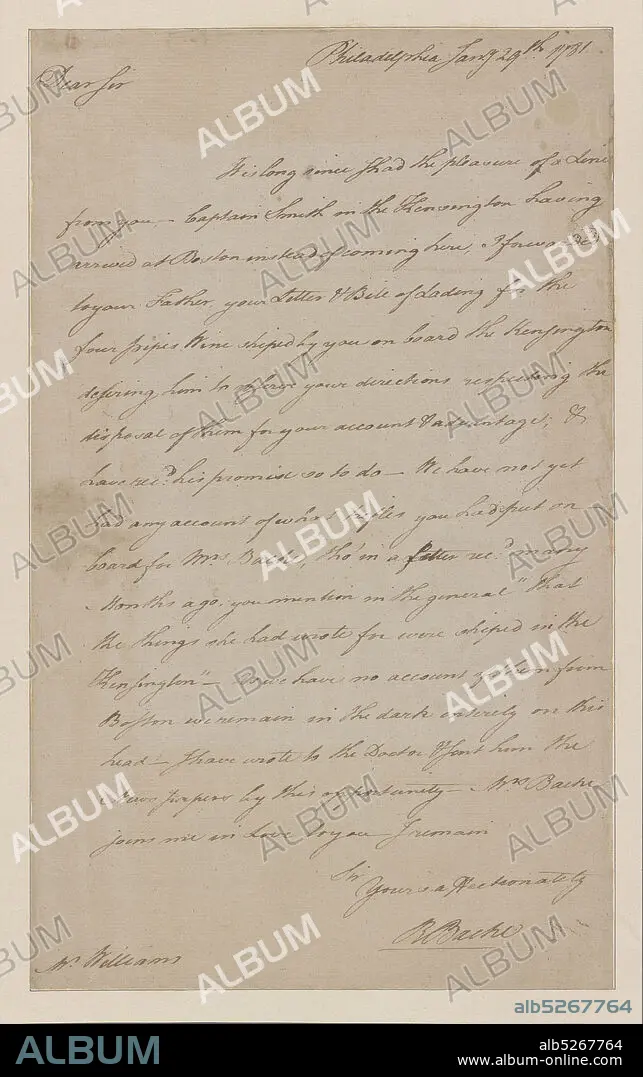 Philadelphia Jany 29th 1781.
Dear Sir
It is long since I had the pleasure of a Line
from you, — Captain Smith in the Kensington having
arrived at Boston instead of coming here, I forwarded
to your Father, your Letter & Bill of Lading for the
four pipes Wine shiped by you on board the Kensington
desiring him to observe your directions respecting the
disposal of them for your account & advantage, &
have recd. his promise so to do — We have not yet
had any account of what you had put on
board for Mrs. Bache, tho' in a Letter recd. many
Months ago, you mention in the general "that
the things she had wrote for were shiped in the
Kensington" — we have no account from
Boston we remain in the dark entirely on this
head — I have wrote to the Doctor & sent him the
News papers by this opportunity — Mrs. Bache
joins me in Love to you I remain
Sir
Yours affectionately
Bache
Mr. Williams
ALBUM
alb5267764
ALBUM
alb5267764
www.album-online.com